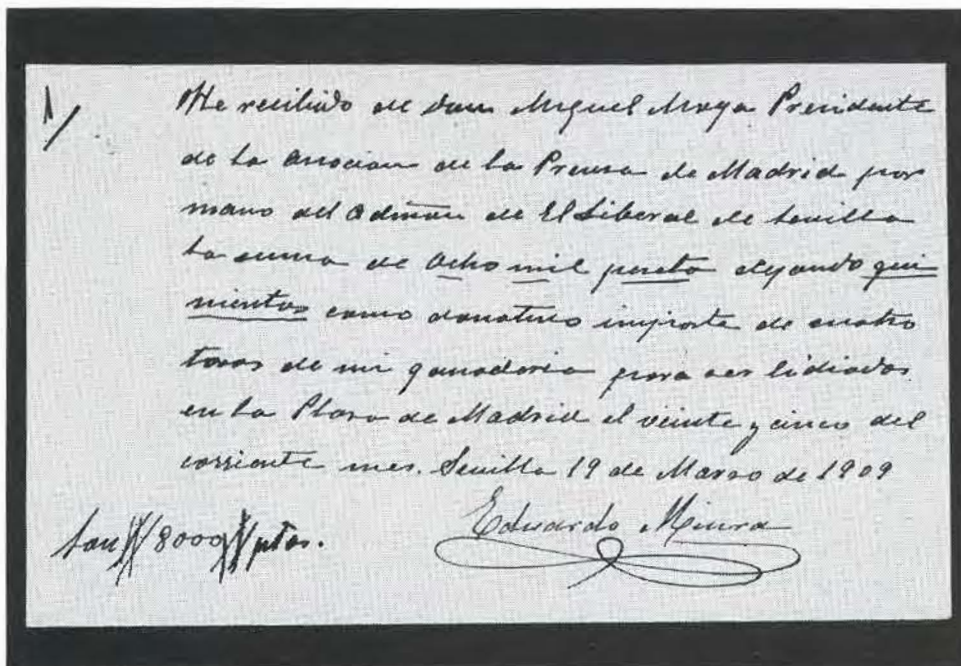 1/
He recibido de Don Miguel Moya Presidente
de la Asocion de la Prensa de Madrid por
mano del Admon de El Liberal de Sevilla
la suma de Ocho mil peseta dejando qui
nientos como donativo importe de cuatro
toros de mi ganaderia para ser lidiados
en la Plaza de Madrid el veinte y cinco del
corriente mes. Sevilla 19 de Marzo de 1909
Eduardo Miura
Son // 8000 // ptas.